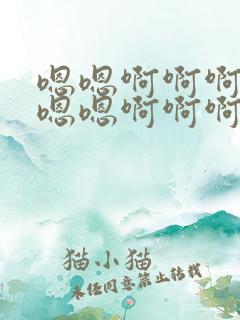 嗯嗯啊啊啊
嗯嗯啊啊啊
猫小猫
未经同意禁止转载